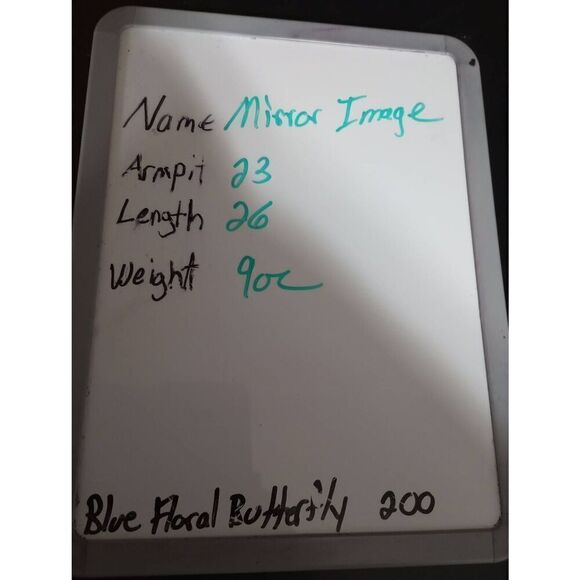 Name Mirror Image
Armpit 23
Length 26
Weight 9oz
Blue Floral Butterfily 200